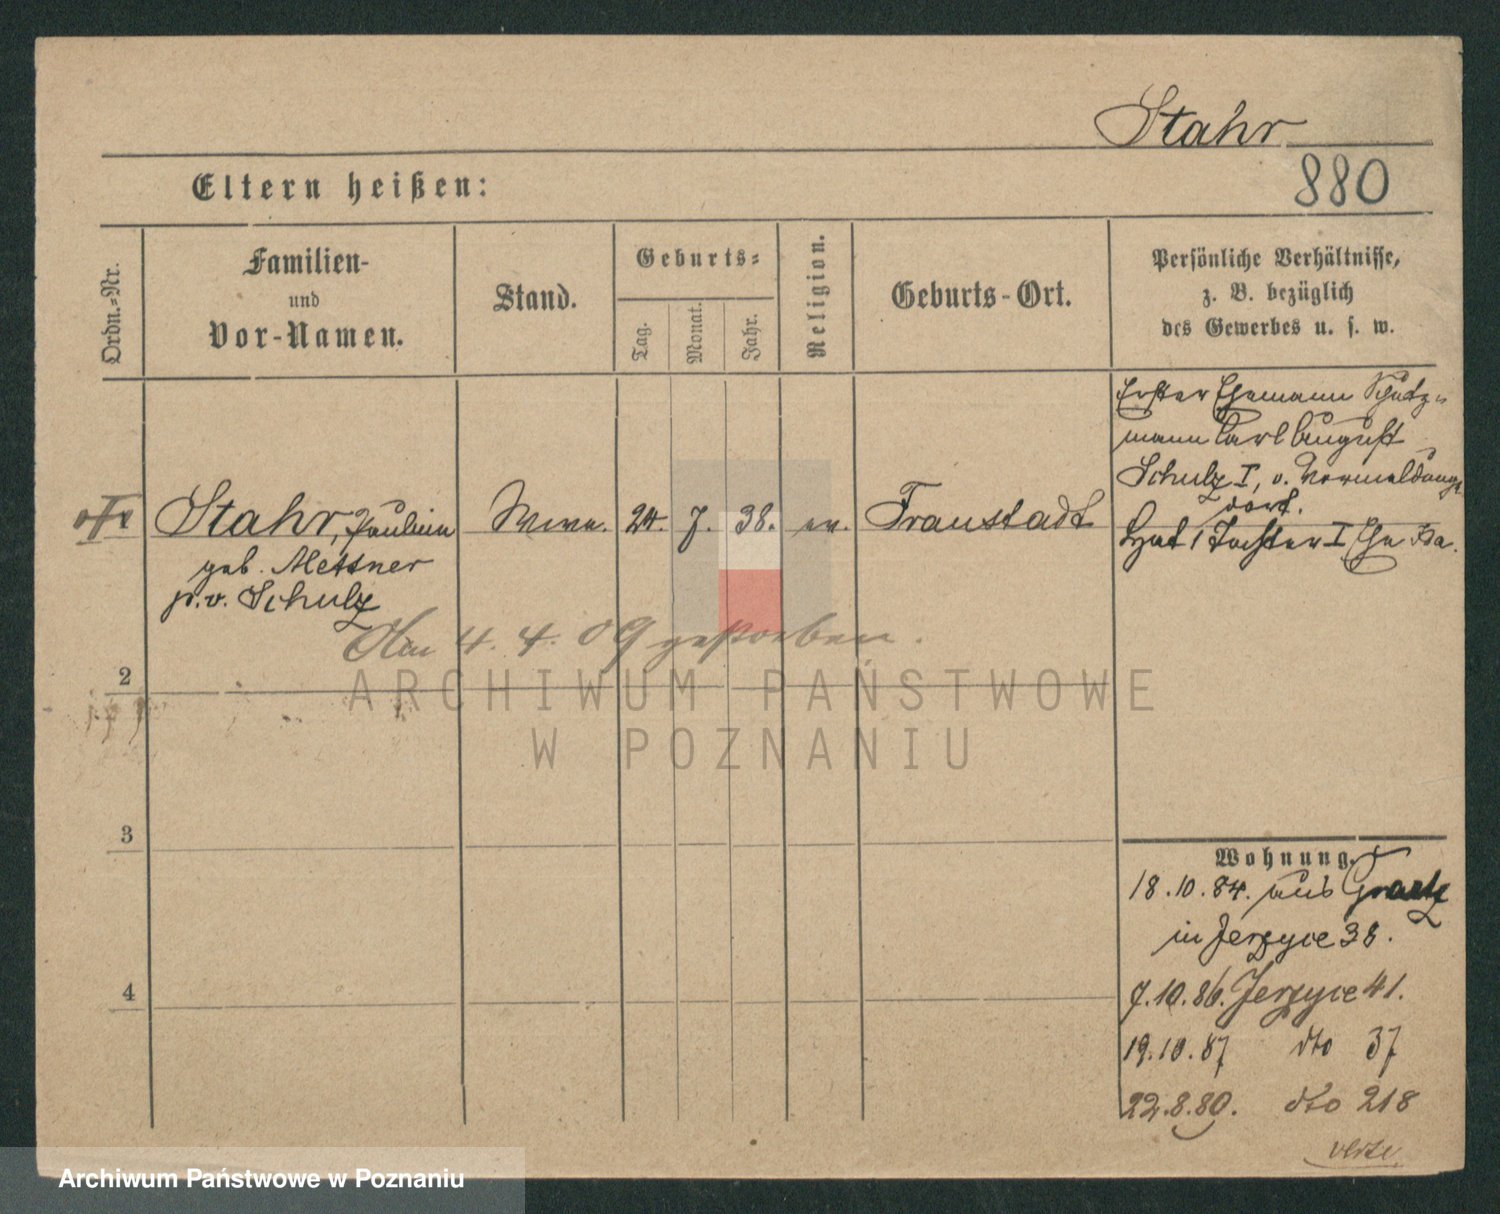 Stahr
880
Eltern heißen:
Ordn.-Nr.
Familien-
und
Vor-Namen.
Stand.
Geburts-
Tag.
Monat.
Jahr.
Religion.
Geburts-Ort.
Persönliche Verhältnisse,
z. B. bezüglich
des Gewerbes u. s. w.
Erster Ehemann Schutz-
mann Carl August
Schulz I, s. Vermeldung
dort.
Hat 1 Tochter I Ehe
Stahr, Paulina Wwe. 24. 7. 38. ev. Fraustadt
geb. Mettner
p. v. Schulz
Am 4. 4. 09 gestorben.
2
3
4
ARCHIWUM PAŃSTWOWE
W POZNANIU
Wohnung.
18.10.84. aus Graetz
in Jerzyce 38.
7.10.86. Jerzyce 41.
19.10.87 dto 37
22.8.89. dto 218
Archiwum Państwowe w Poznaniu